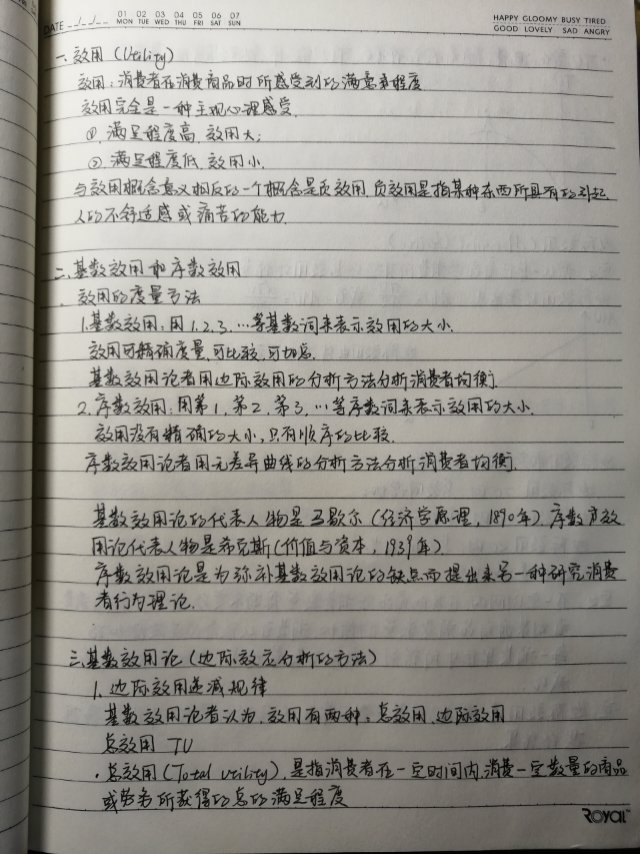 DATE
01 02 03 04 05 06 07
MON TUE WED THU FRI SAT SUN
HAPPY GLOOMY BUSY TIRED
GOOD LOVELY SAD ANGRY
一、效用（Utility）
效用：消费者在消费商品时所感受到的满意程度
效用完全是一种主观心理感受.
①.满足程度高.效用大;
②.满足程度低.效用小.
与效用概念意义相反的一个概念是负效用.负效用是指某种东西所具有的引起
人的不舒适感或痛苦的能力.
二、基数效用和序数效用
效用的度量方法
1.基数效用:用1.2.3.…等基数词来表示效用的大小.
效用可精确度量,可比较,可加总.
基数效用论者用边际效用的分析方法分析消费者均衡.
2.序数效用:用第1,第2,第3,…等序数词来表示效用的大小.
效用没有精确的大小,只有顺序的比较.
序数效用论者用无差异曲线的分析方法分析消费者均衡.
基数效用论的代表人物是马歇尔（经济学原理,1890年）.序数效
用论代表人物是希克斯（价值与资本,1939年）
序数效用论是为弥补基数效用论的缺点而提出来另一种研究消费
者行为理论.
三.基数效用论（边际效应分析的方法）
1.边际效用递减规律
基数效用论者认为,效用有两种:总效用.边际效用
总效用 TU
·总效用(Total utility),是指消费者在一定时间内,消费一定数量的商品
或劳务所获得的总的满足程度
ROYAL